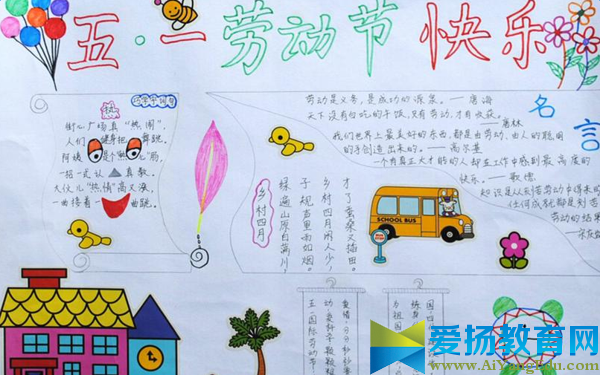 五·一劳动节快乐
热
街心广场真“热闹”,
人们健身把舞跳。
阿姨是个“热心”肠,
一招一式认真教。
大伙儿“热情”高又涨,
一曲接着一曲跳。
名言
劳动是义务,是成功的源泉。——唐海
天下没有白吃的干饭,只有劳动,才有收获。
我们世界上最美好的东西,都是由劳动、由人的聪明
的手创造出来的。——高尔基
一个真正大才的人却在工作中感到最高度的
快乐。——歌德
知识是从刻苦劳动中得来的
任何成就都是刻苦
劳动的结果
乡村四月
绿遍山原白满川,
子规声里雨如烟。
乡村四月闲人少,
才了蚕桑又插田。
SCHOOL BUS
BUS STOP
五一国际劳动节
爱扬教育网
www.AiYangEdu.com